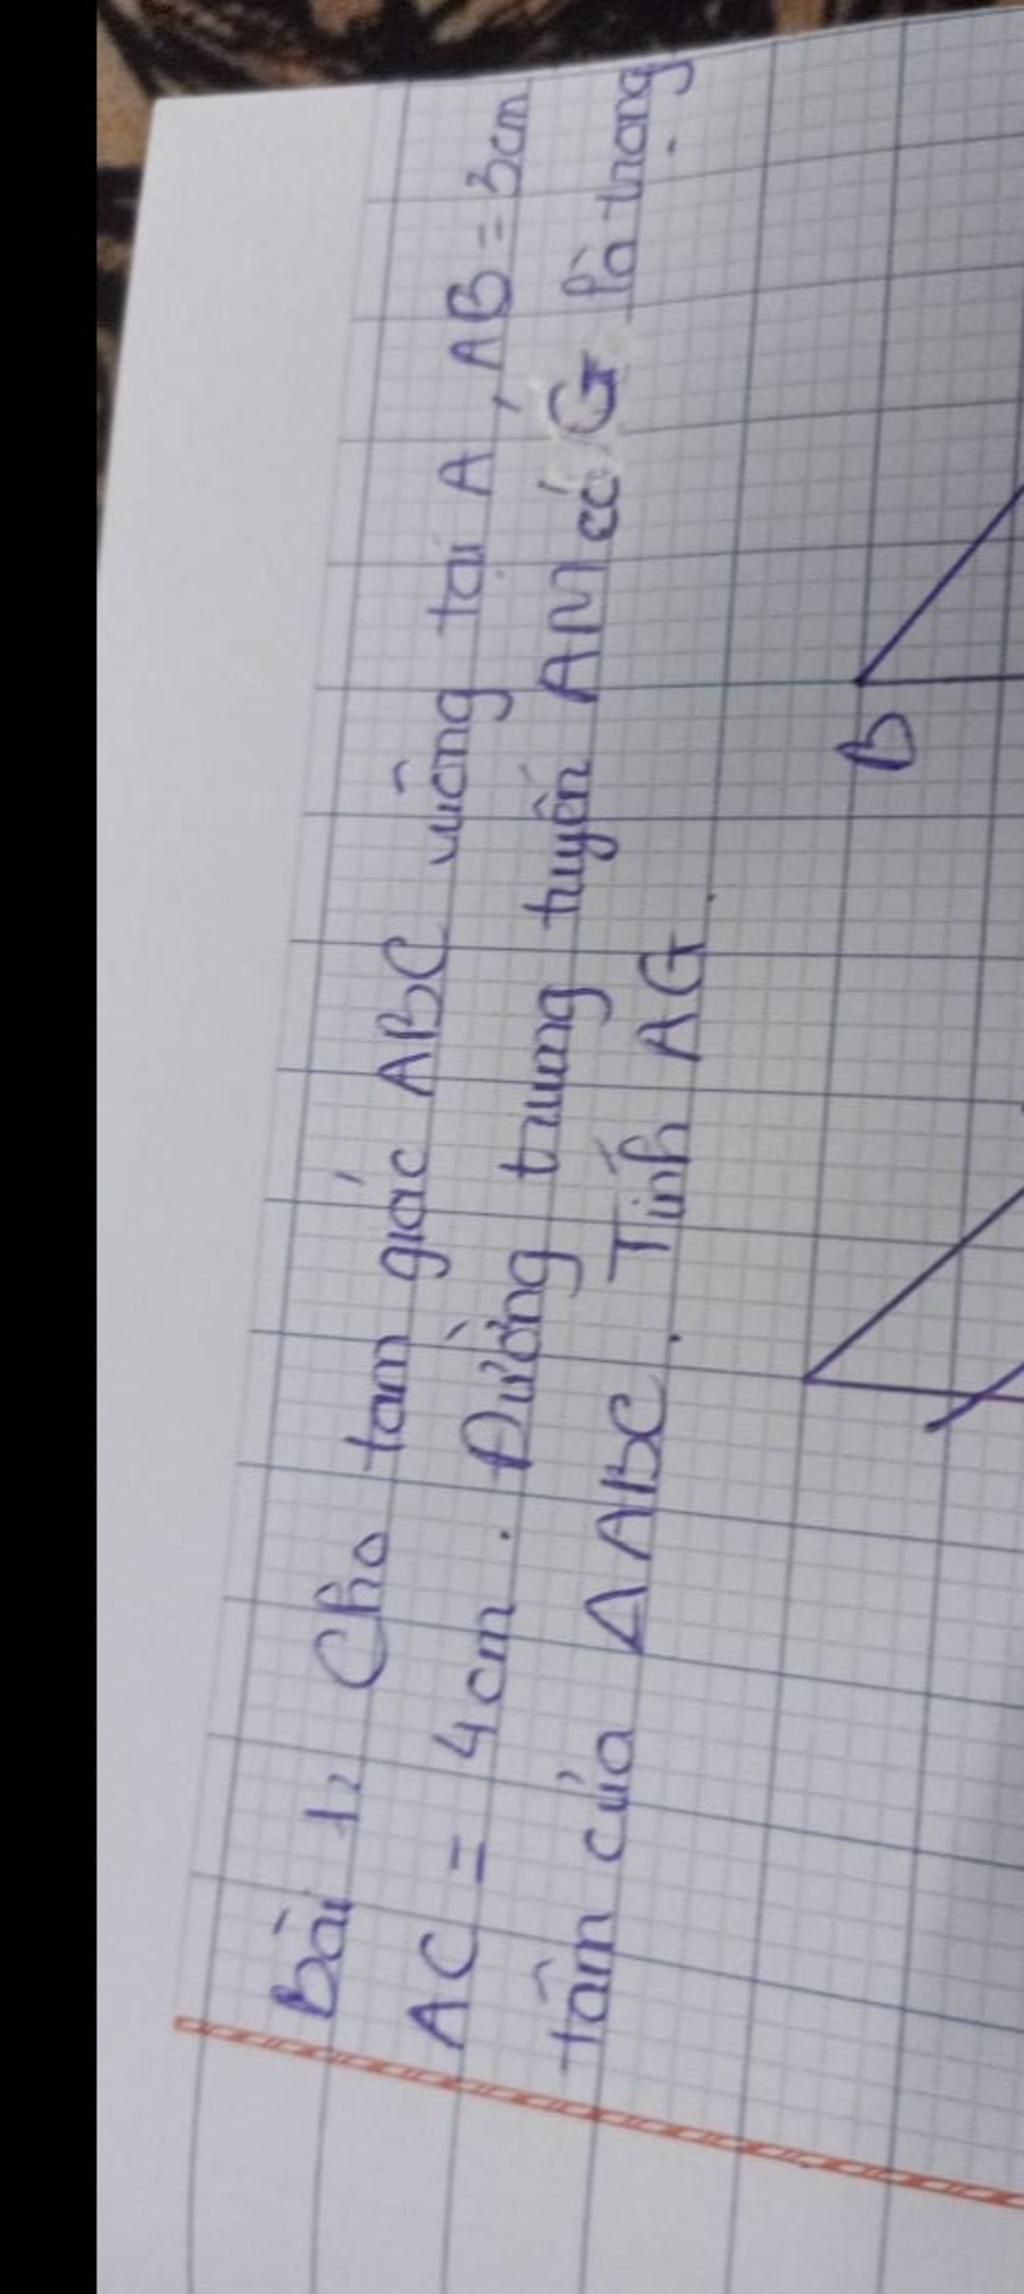 Bài 1, Cho tam giác ABC vuông tại A, AB = 3cm
AC = 4cm. Đường trung tuyến AM có G là trọng
tâm của ΔABC. Tính AG.
B